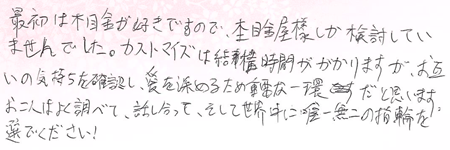 最初は木目金が好きですので、杢目金屋様しか検討してい
ませんでした。カストマイズは結構時間がかかりますが、お互
いの気持ちを確認し、愛を深めるため重要な一環だと思います
お二人はよく調べて、話し合って、そして世界中に唯一無二の指輪を
選でください！